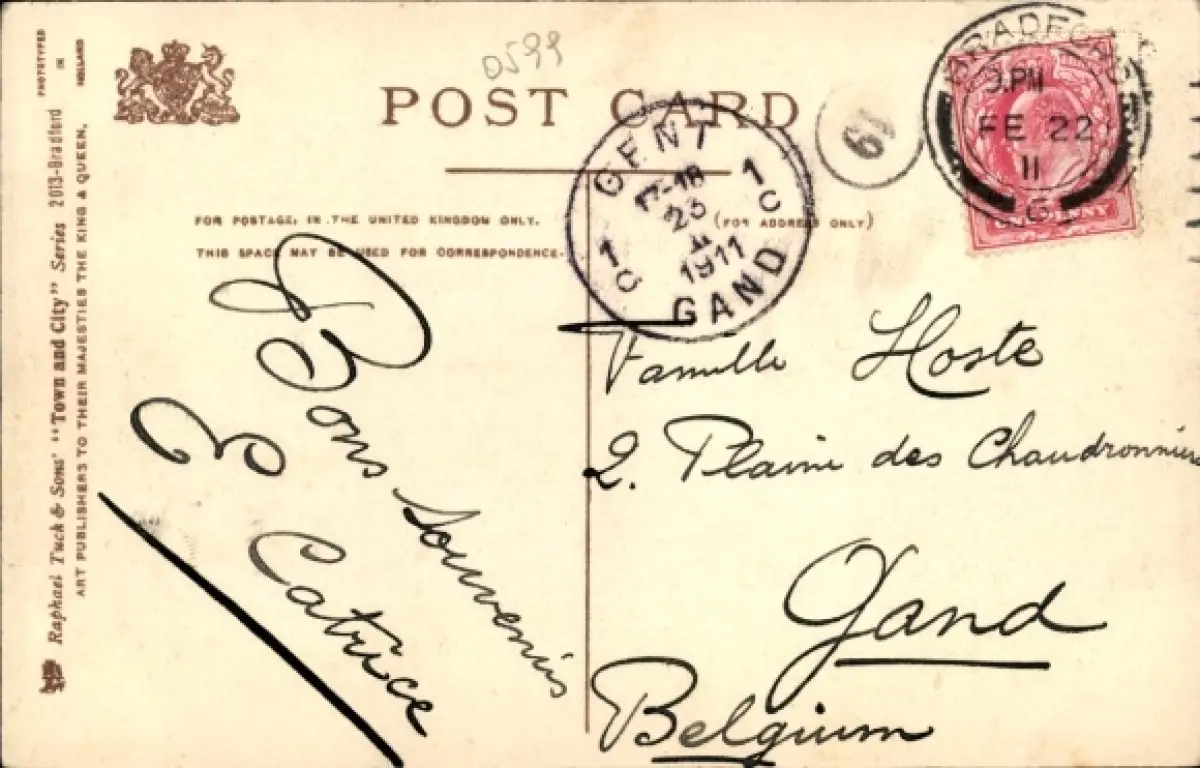 0599
POST CARD
FOR POSTAGE, IN THE UNITED KINGDOM ONLY.
(FOR ADDRESS ONLY)
THIS SPACE MAY BE USED FOR CORRESPONDENCE.
PHOTOTYPED IN HOLLAND
Raphael Tuck & Sons' "Town and City" Series 2013-Bradford
ART PUBLISHERS TO THEIR MAJESTIES THE KING & QUEEN.
GENT
1C
17-18
23
II
1911
1C
GAND
61
BRADFORD
9.PM
FE 22
11
G
ONE PENNY
Bons Souvenirs
E Catrice
Famille Hoste
2. Plaine des Chaudronniers
Gand
Belgium